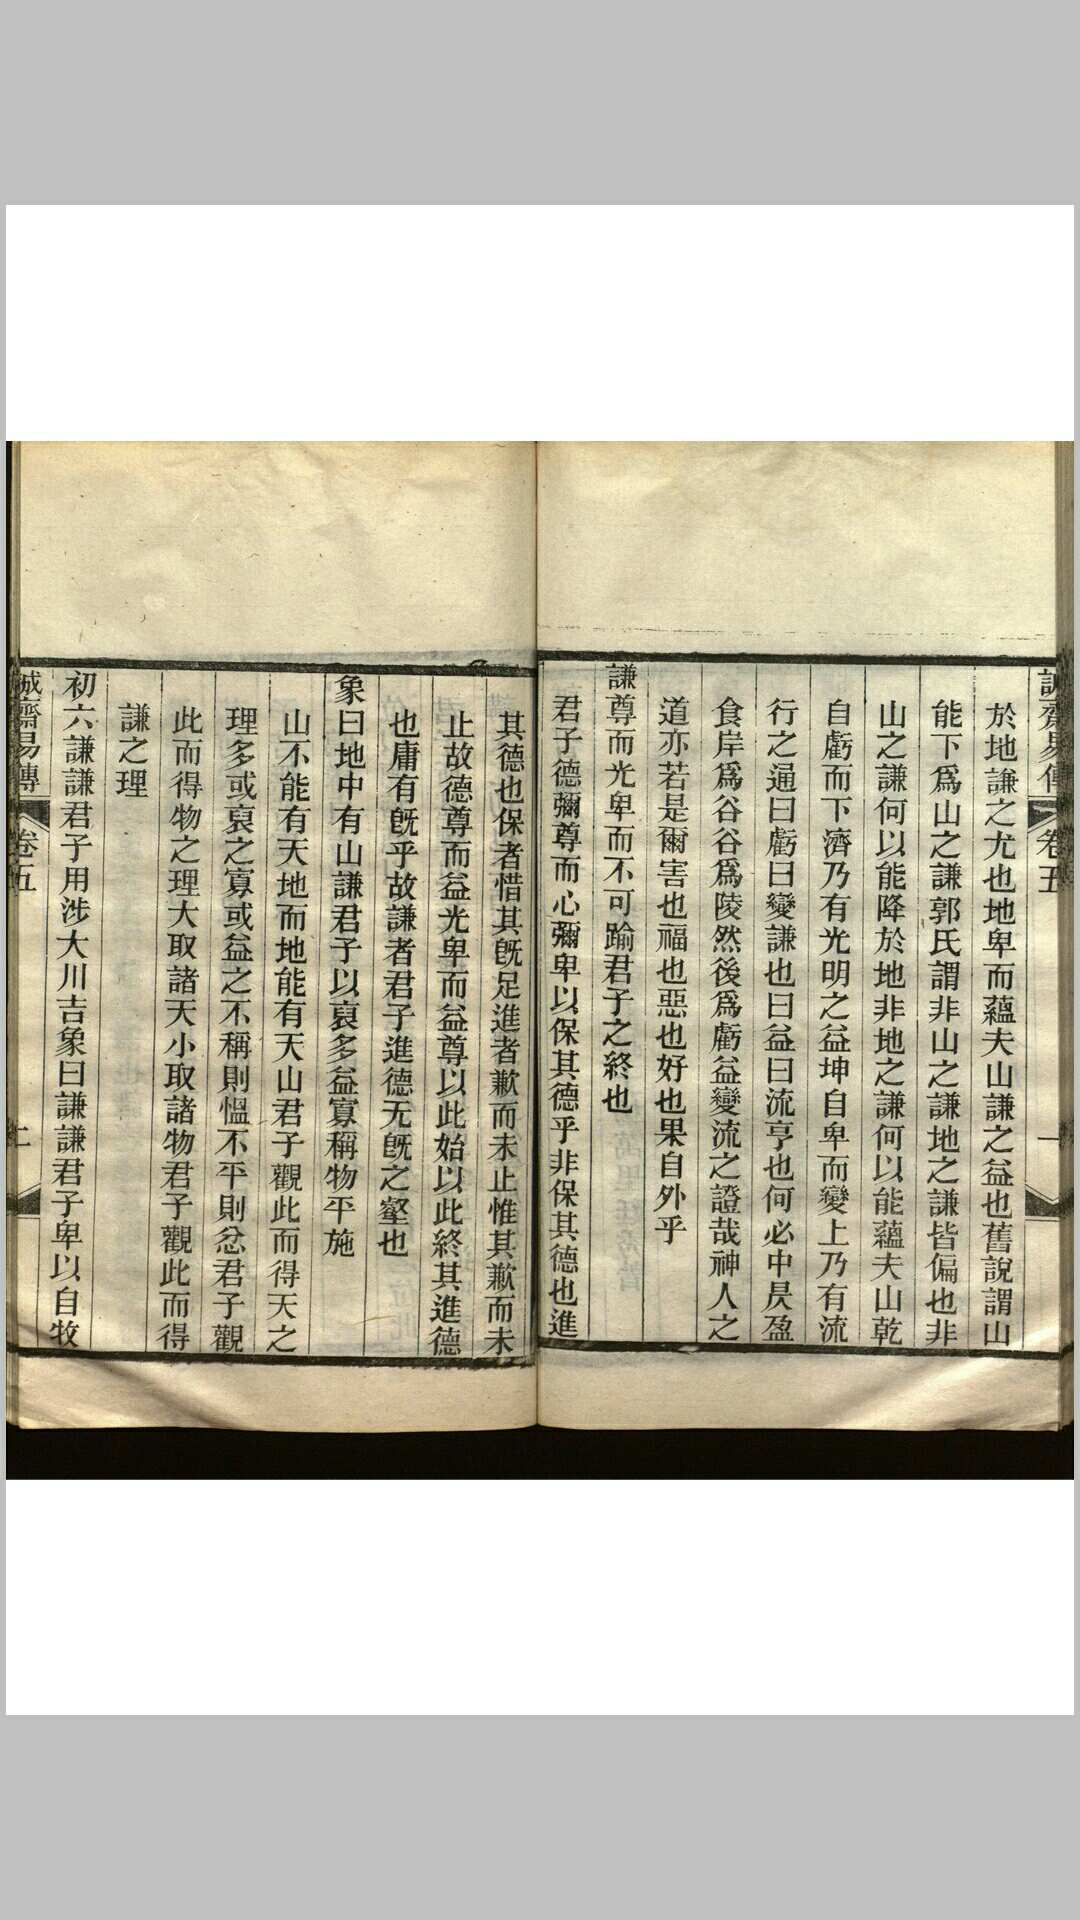 誠齋易傳 卷五
於地謙之尤也地卑而蘊夫山謙之益也舊說謂山
能下爲山之謙郭氏謂非山之謙地之謙皆偏也非
山之謙何以能降於地非地之謙何以能蘊夫山乾
自虧而下濟乃有光明之益坤自卑而變上乃有流
行之通曰虧曰變謙也曰益曰流亨也何必中昃盈
食岸爲谷谷爲陵然後爲虧益變流之證哉神人之
道亦若是爾害也福也惡也好也果自外乎
謙尊而光卑而不可踰君子之終也
君子德彌尊而心彌卑以保其德乎非保其德也進
其德也保者惜其旣足進者歉而未止惟其歉而未
止故德尊而益光卑而益尊以此始以此終其進德
也庸有旣乎故謙者君子進德无旣之壑也
象曰地中有山謙君子以裒多益寡稱物平施
山不能有天地而地能有天山君子觀此而得天之
理多或裒之寡或益之不稱則慍不平則忿君子觀
此而得物之理大取諸天小取諸物君子觀此而得
謙之理
初六謙謙君子用涉大川吉象曰謙謙君子卑以自牧
誠齋易傳 卷五